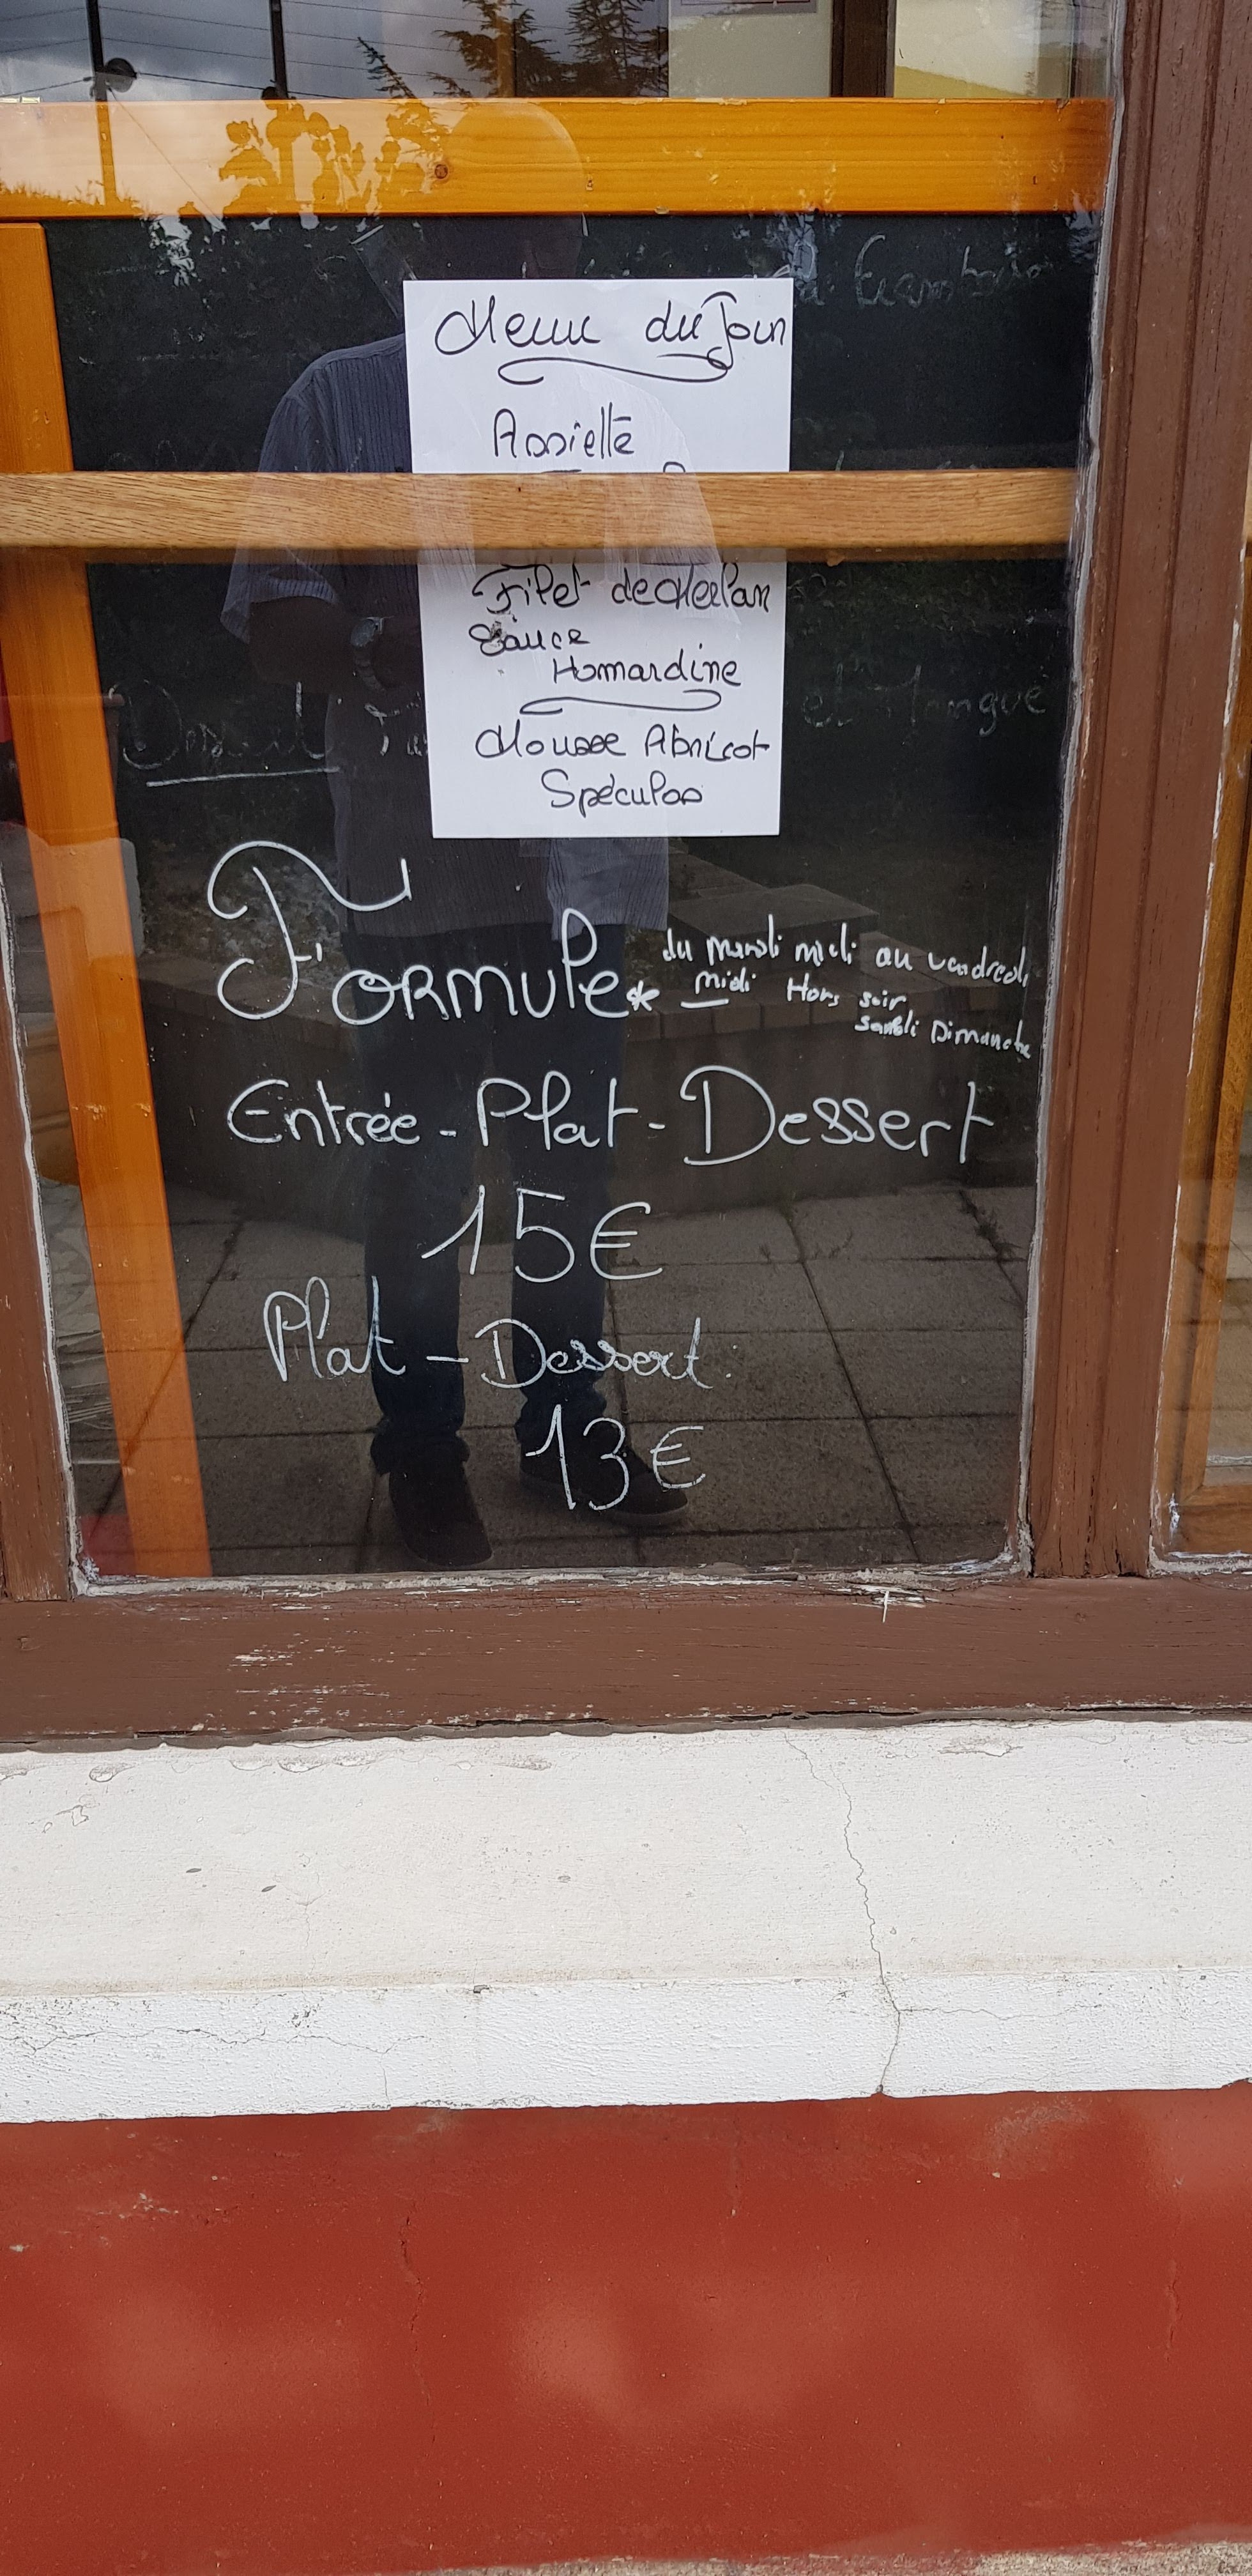 Menu du Jour
Assiette
Filet de Merlan
Sauce
Homardine
Mousse Abricot
Spéculos
Dessert et Mangue
Formule* du Mardi midi au vendredi
midi Hors soir
samedi Dimanche
Entrée - Plat - Dessert
15€
Plat - Dessert
13€